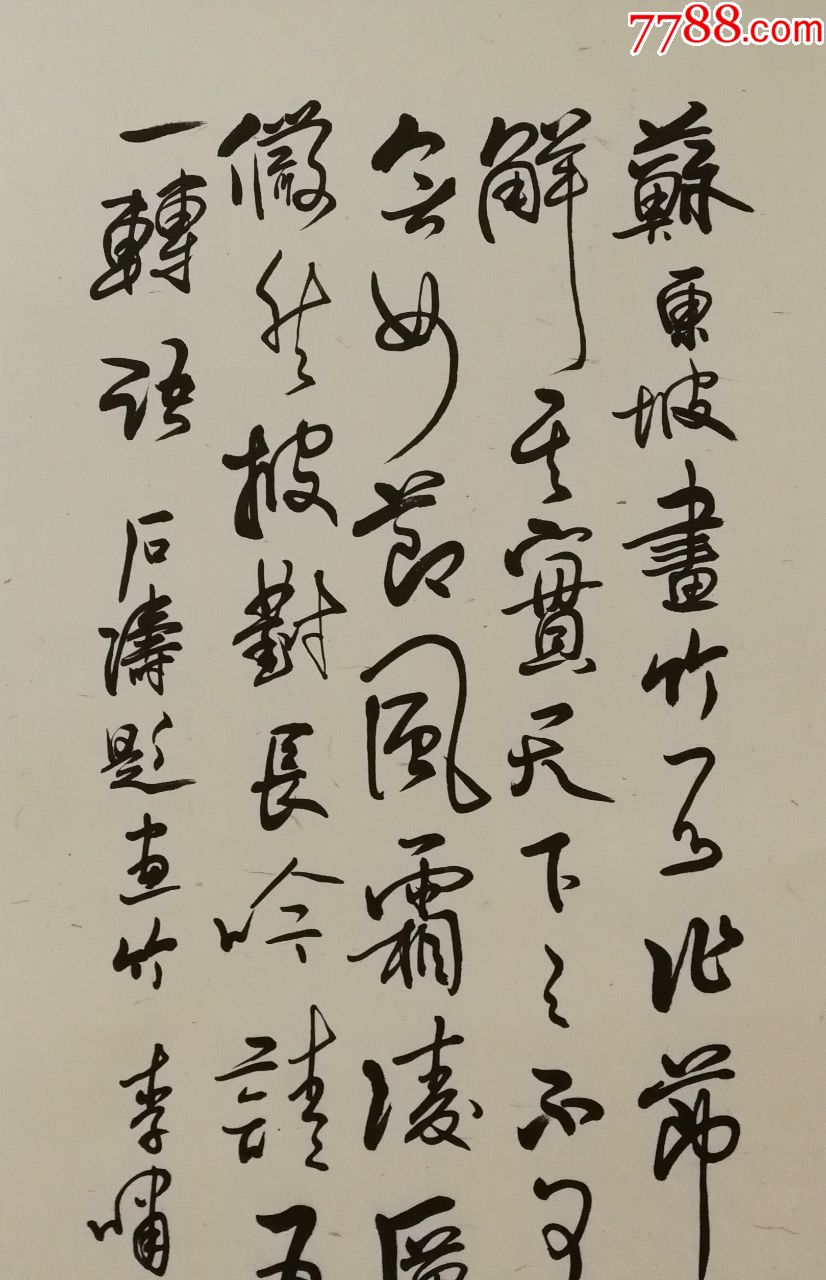 7788.com
蘇東坡畫竹不作節
解其實天下之不可
無如節風霜凌厲
儼然披對長吟請
一轉語 石濤題畫竹 李嘯